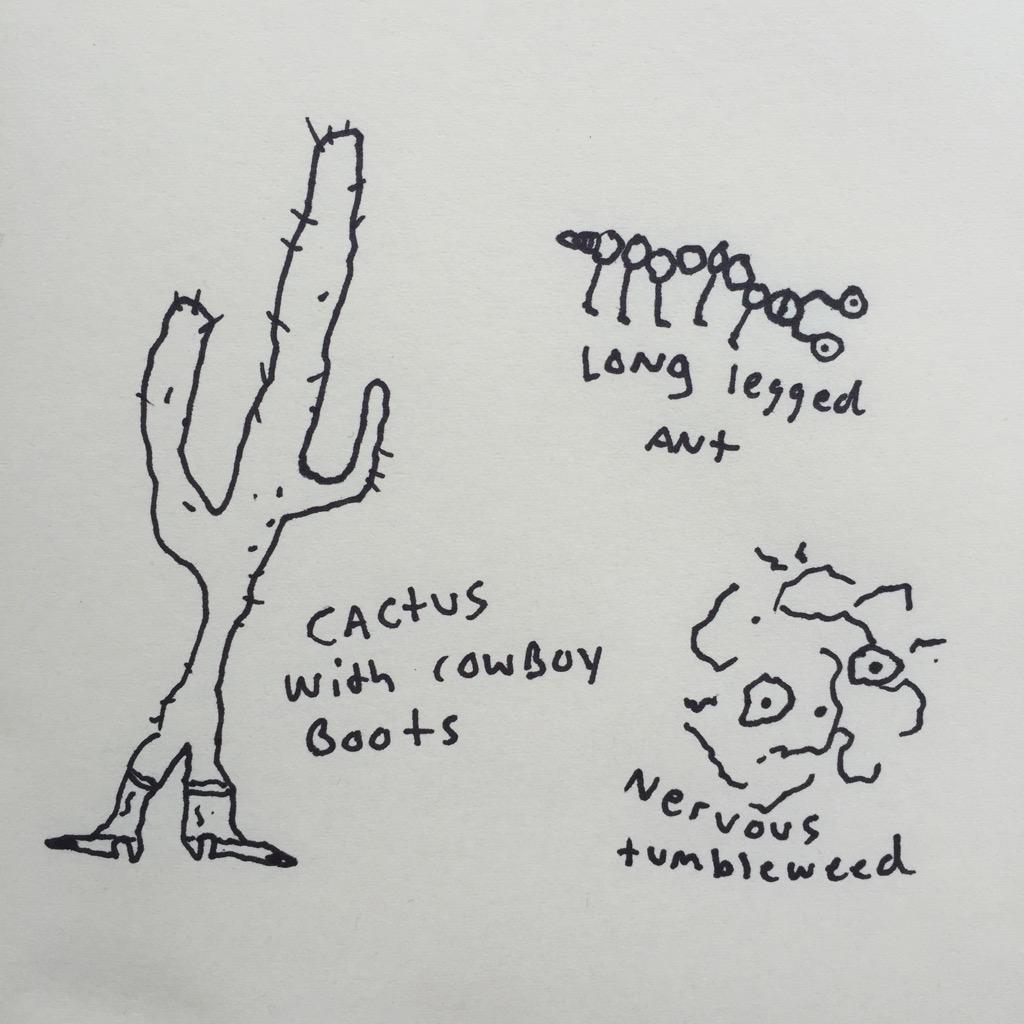 LONg legged
ANt
CACtUS
with cowBoy
Boots
Nervous
tumbleweed